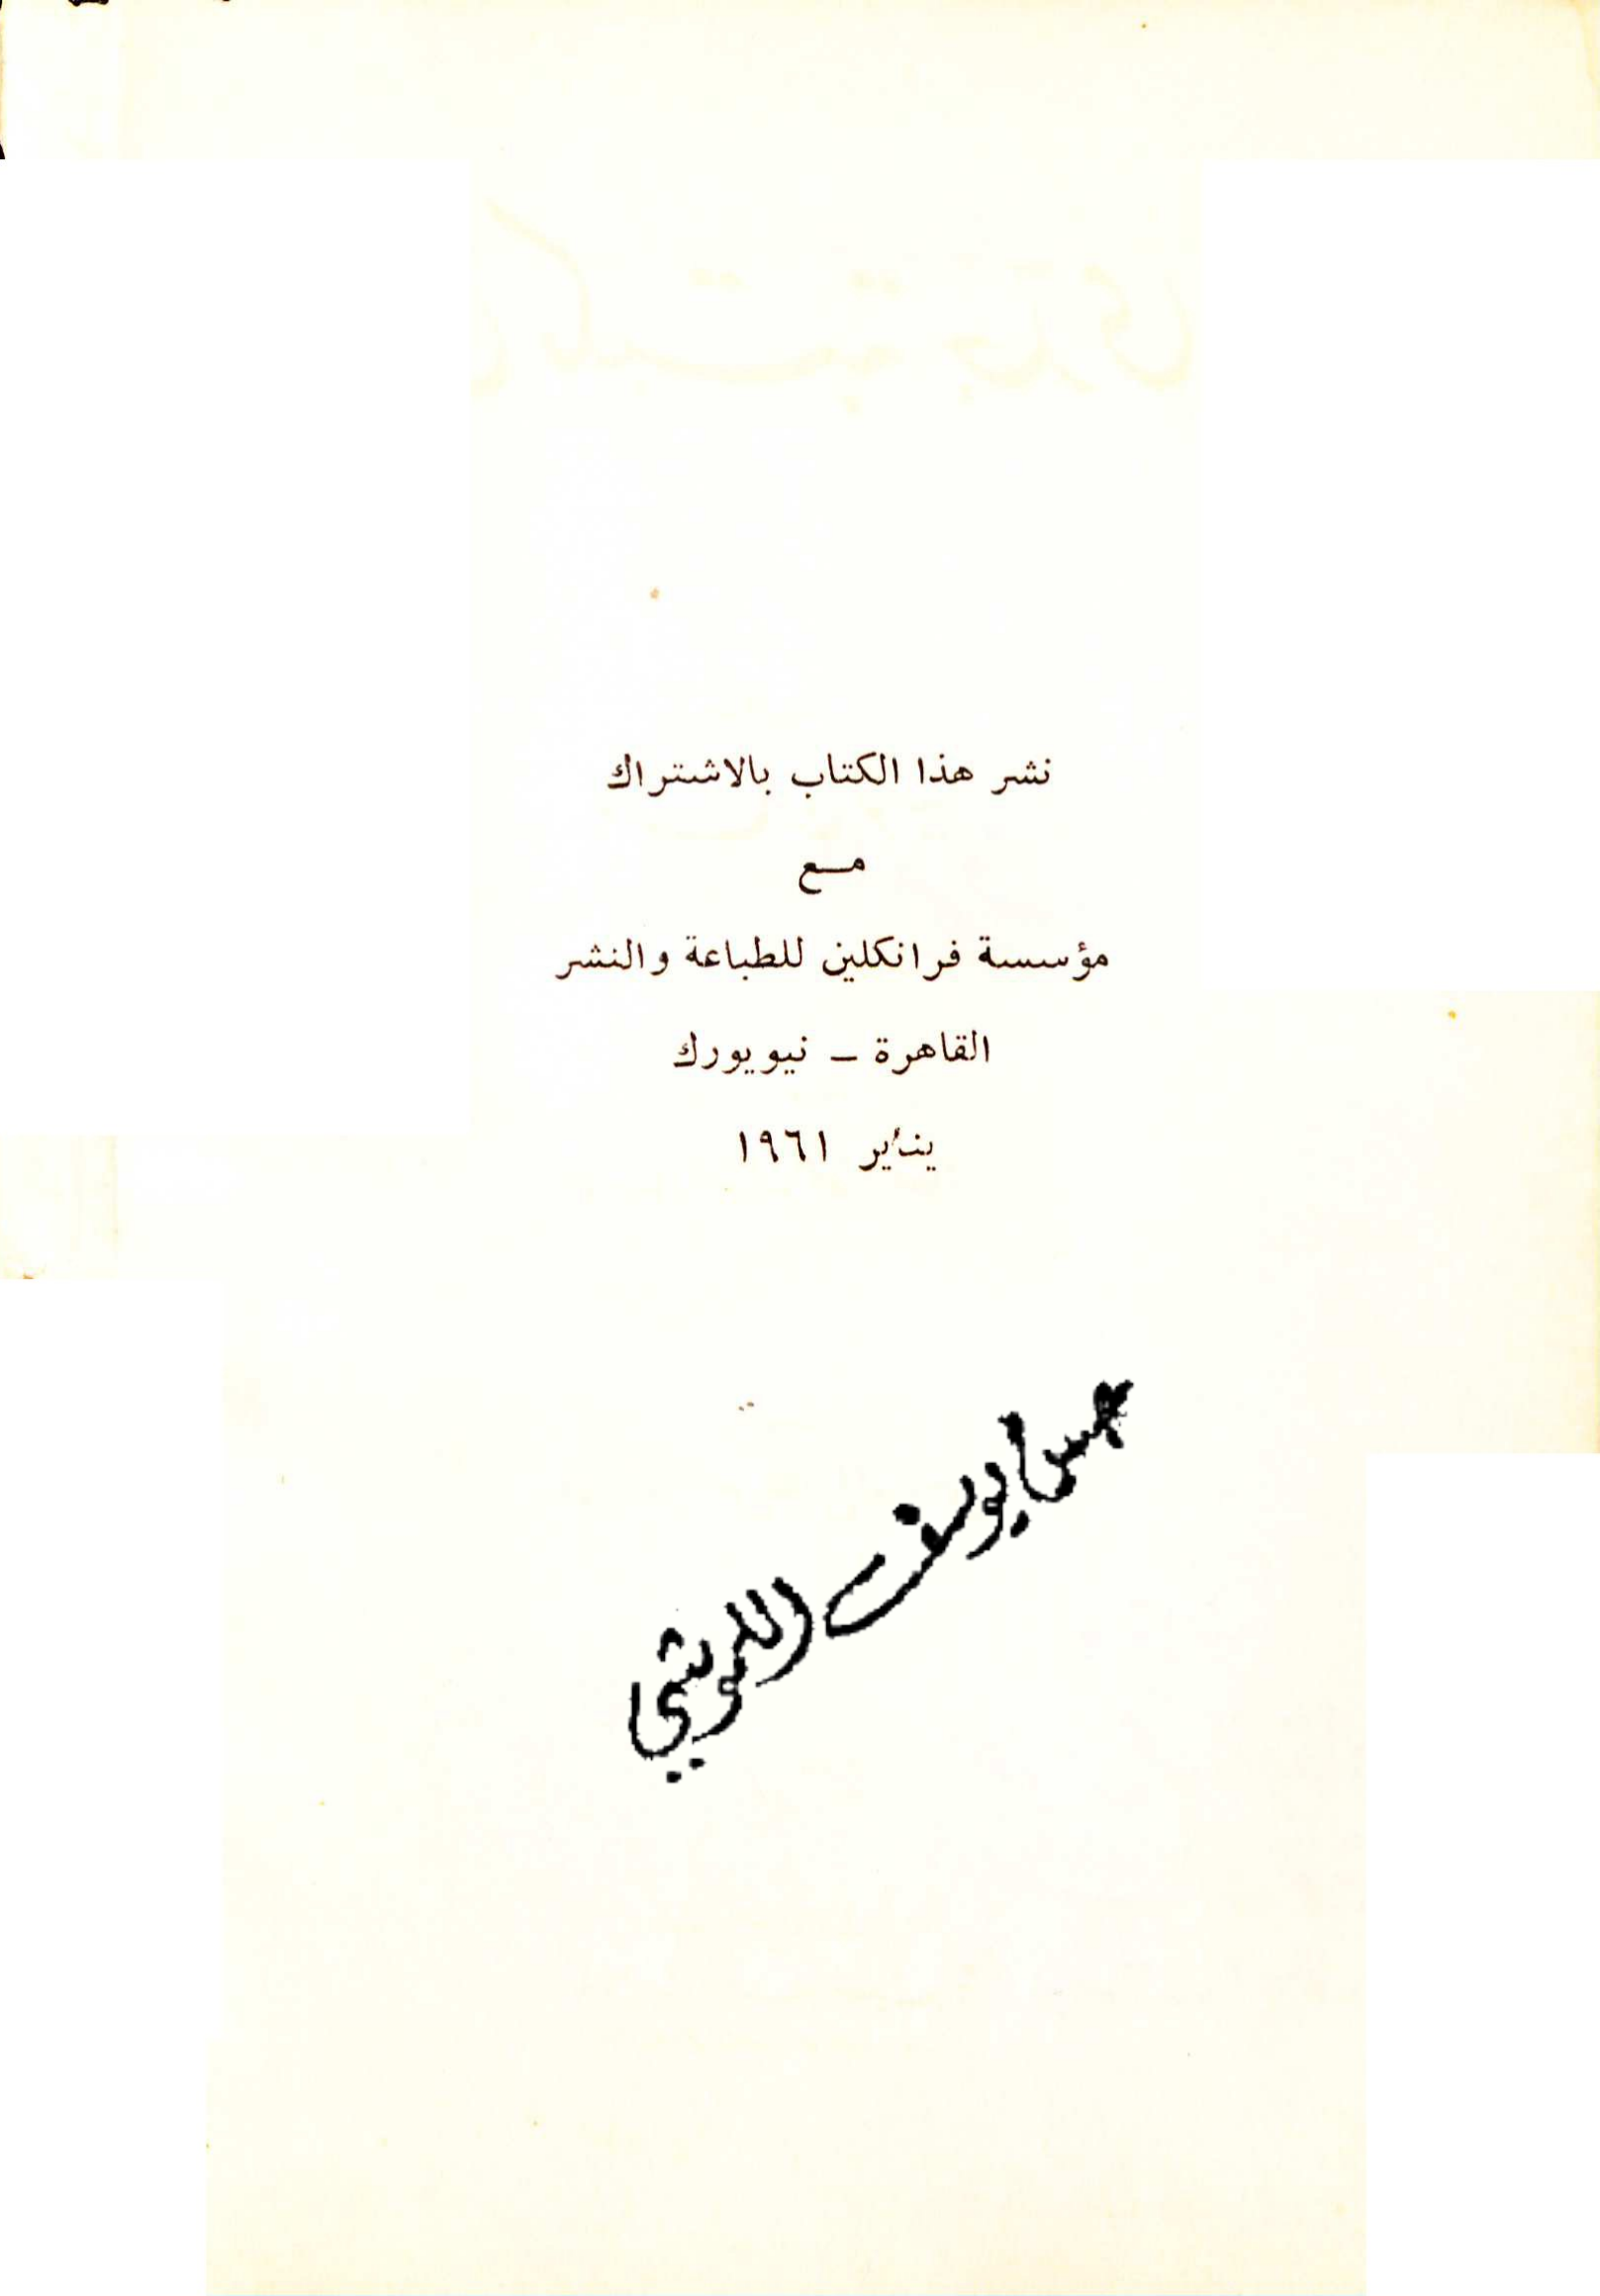 نشر هذا الكتاب بالاشتراك
مع
مؤسسة فرانكلين للطباعة والنشر
القاهرة – نيويورك
يناير ١٩٦١
يوسف